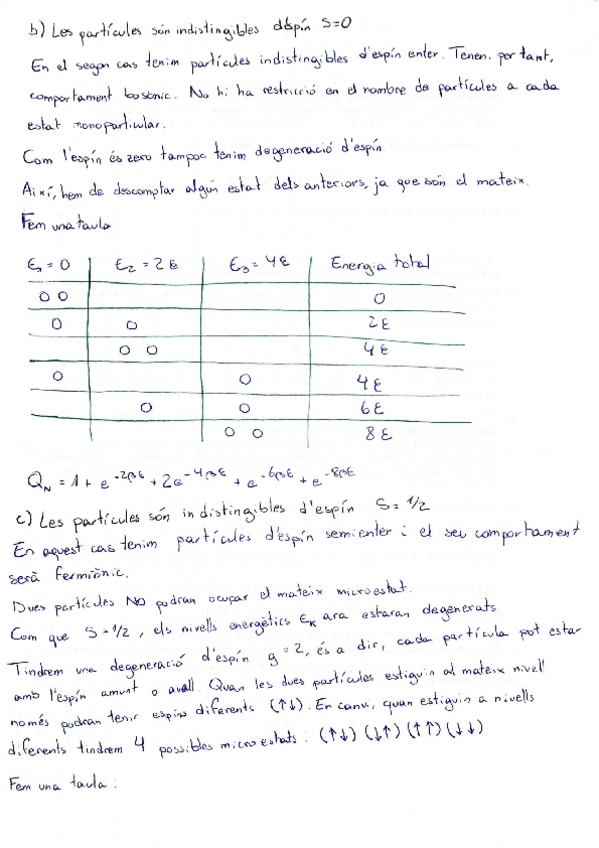 b) Les partícules són indistingibles d'espín S=0
En el segon cas tenim partícules indistingibles d'espín enter. Tenen, per tant,
comportament bosònic. No hi ha restricció en el nombre de partícules a cada
estat monoparticular.
Com l'espín és zero tampoc tenim degeneració d'espín
Així, hem de descomptar algún estat dels anteriors, ja que són el mateix.
Fem una taula
ε₁ = 0 ε₂ = 2ε ε₃ = 4ε Energia total
0 0 0
0 0 2ε
0 0 4ε
0 0 4ε
0 0 6ε
0 0 8ε
Q_N = 1 + e^-2βε + 2e^-4βε + e^-6βε + e^-8βε
c) Les partícules són indistingibles d'espín S = 1/2
En aquest cas tenim partícules d'espín semienter i el seu comportament
serà fermiònic.
Dues partícules NO podran ocupar el mateix microestat.
Com que S=1/2, els nivells energètics ε_K ara estaran degenerats
Tindrem una degeneració d'espín g = 2, és a dir, cada partícula pot estar
amb l'espín amunt o avall. Quan les dues partícules estiguin al mateix nivell
només podran tenir espins diferents (↑↓). En canvi, quan estiguin a nivells
diferents tindrem 4 possibles microestats: (↑↓) (↓↑) (↑↑) (↓↓)
Fem una taula: